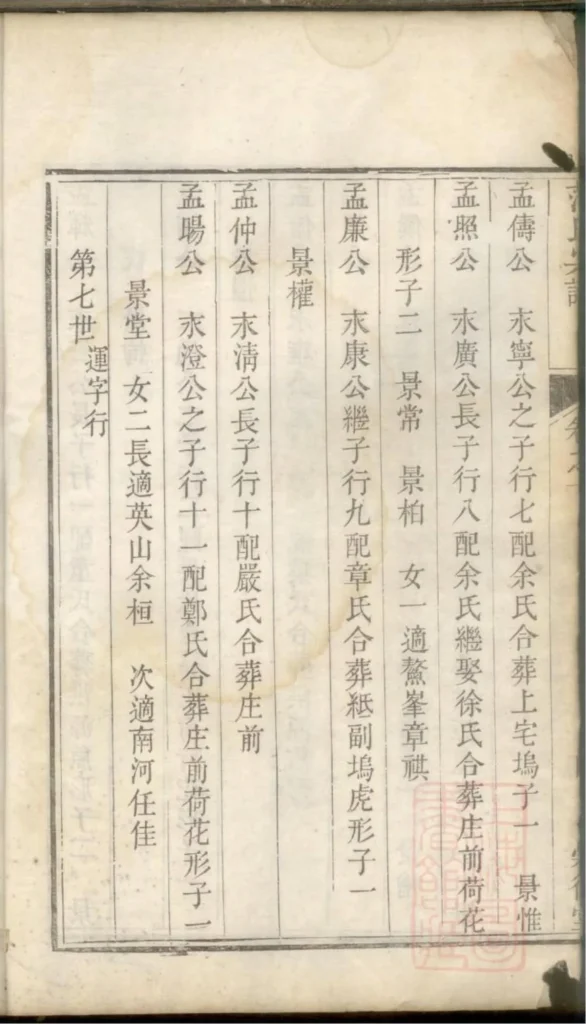 孟儔公　永寧公之子行七配余氏合葬上宅塢子一　景惟
孟照公　永廣公長子行八配余氏繼娶徐氏合葬庄前荷花
形子二　景常　景柏　女一適鰲峯章祺
孟廉公　永康公繼子行九配章氏合葬紙副塢虎形子一
景權
孟仲公　永清公長子行十配嚴氏合葬庄前
孟暘公　永澄公之子行十一配鄭氏合葬庄前荷花形子一
景堂　女二長適英山余桓　次適南河任佳
第七世運字行